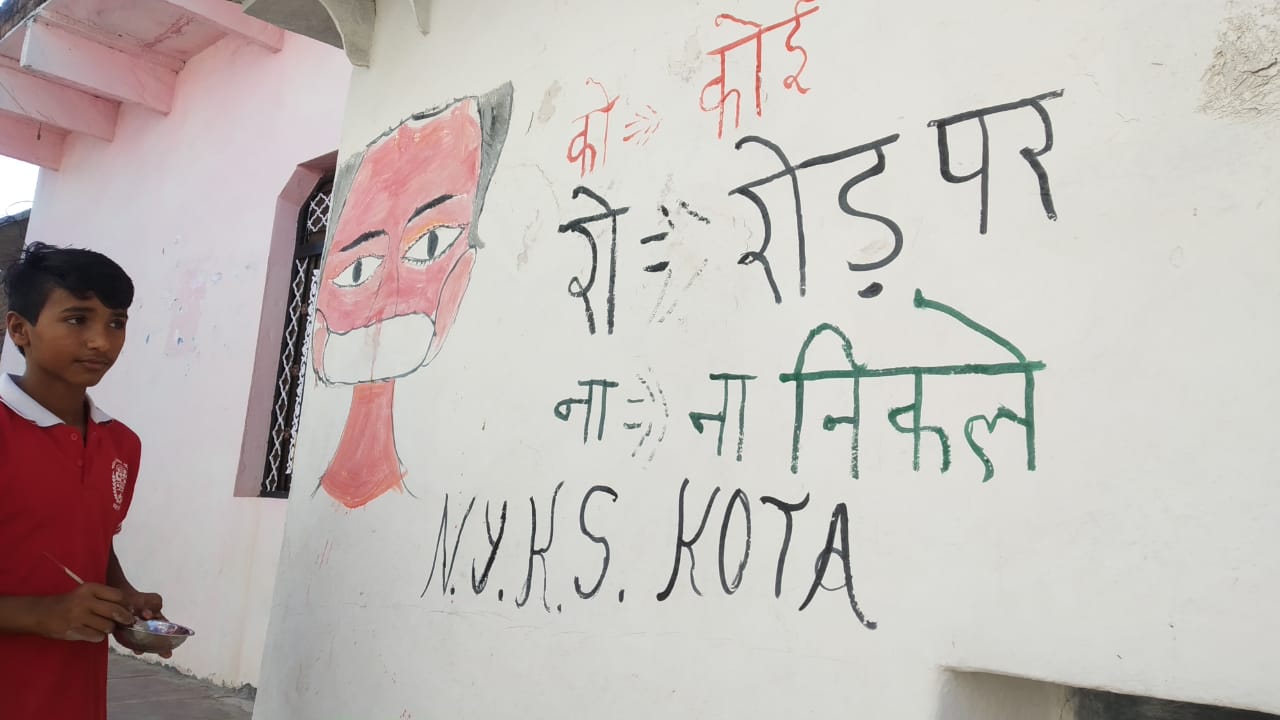 को => कोई
रो => रोड़ पर
ना => ना निकले
N.Y.K.S. KOTA